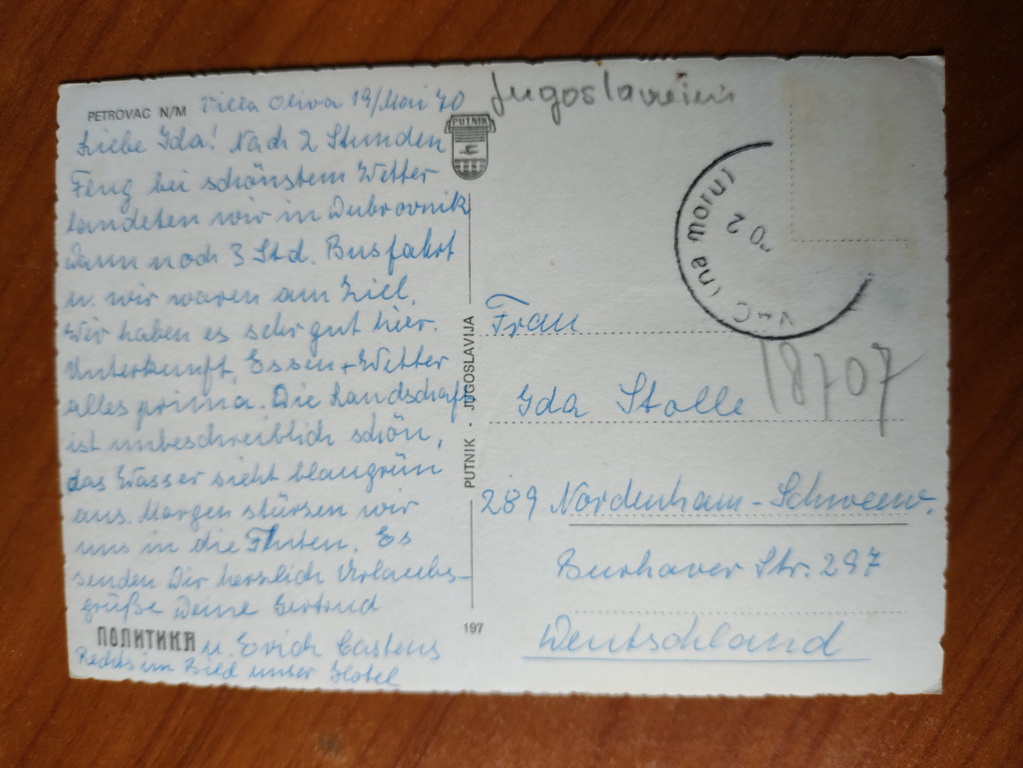 PETROVAC N/M Villa Oliva 19/Mai 70
Liebe Ida! Nach 2 Stunden
Flug bei schönstem Wetter
landeten wir in Dubrovnik
Dann noch 3 Std. Busfahrt
u. wir waren am Ziel.
Wir haben es sehr gut hier.
Unterkunft, Essen + Wetter
alles prima. Die Landschaft
ist unbeschreiblich schön,
das Wasser sieht blaugrün
aus. Morgen stürzen wir
uns in die Fluten. Es
senden Dir herzlich Urlaubs-
grüße Deine Gertrud
ПОЛИТИКА u. Erich Castens
Rechts im Bild unser Hotel
PUTNIK
PUTNIK - JUGOSLAVIJA
197
Jugoslawien
(na moru)
Frau
Ida Stolle
18707
289 Nordenham-Schweew.
Burhaver Str. 297
Deutschland